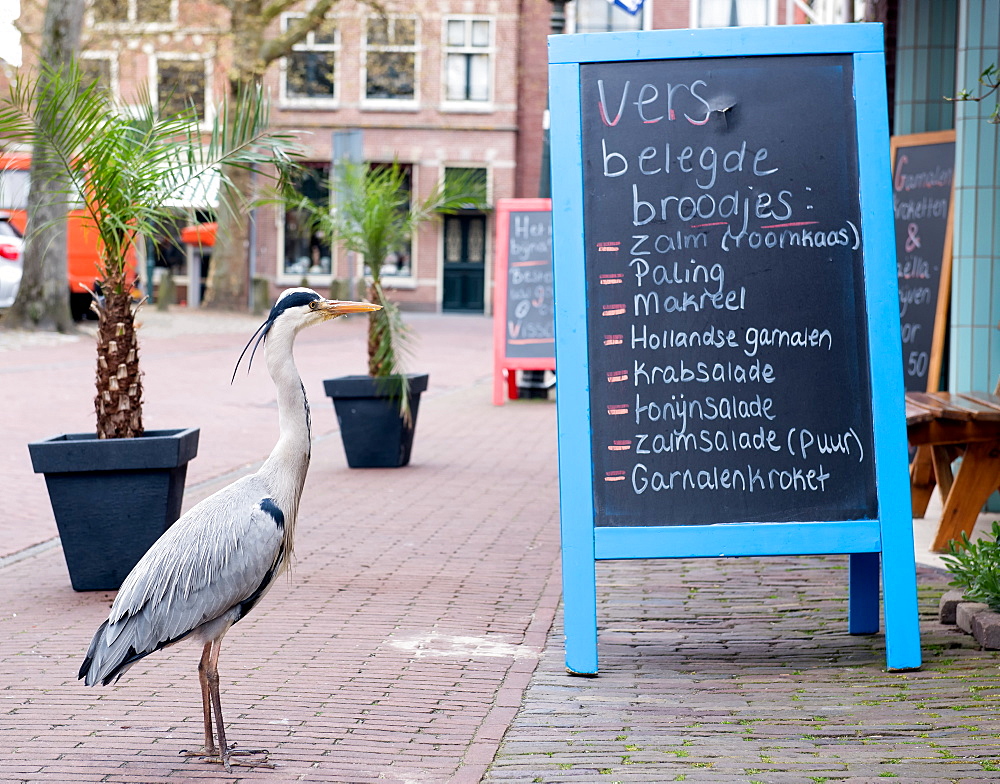 Vers
belegde
broodjes:
Zalm (roomkaas)
Paling
Makreel
Hollandse garnalen
Krabsalade
tonijnsalade
zalmsalade (puur)
Garnalenkroket
Het
bijna
Garnalen
kroketten
&
50